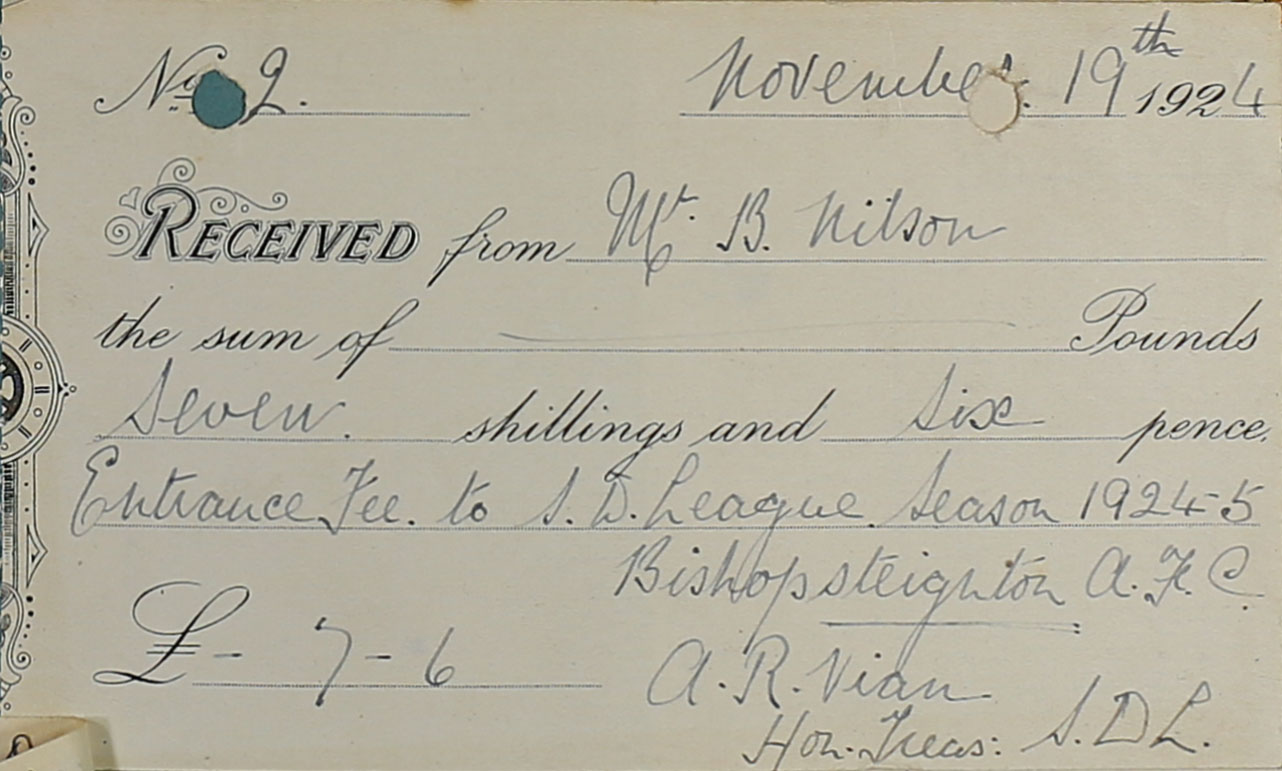 No 2. November. 19th 1924
RECEIVED from Mr. B. Nilson
the sum of Pounds
Seven. shillings and Six pence.
Entrance Fee. to S. D. League Season 1924-5
Bishopsteignton A. F. C.
£ - 7 - 6
A. R. Vian
Hon. Treas: S. D L.